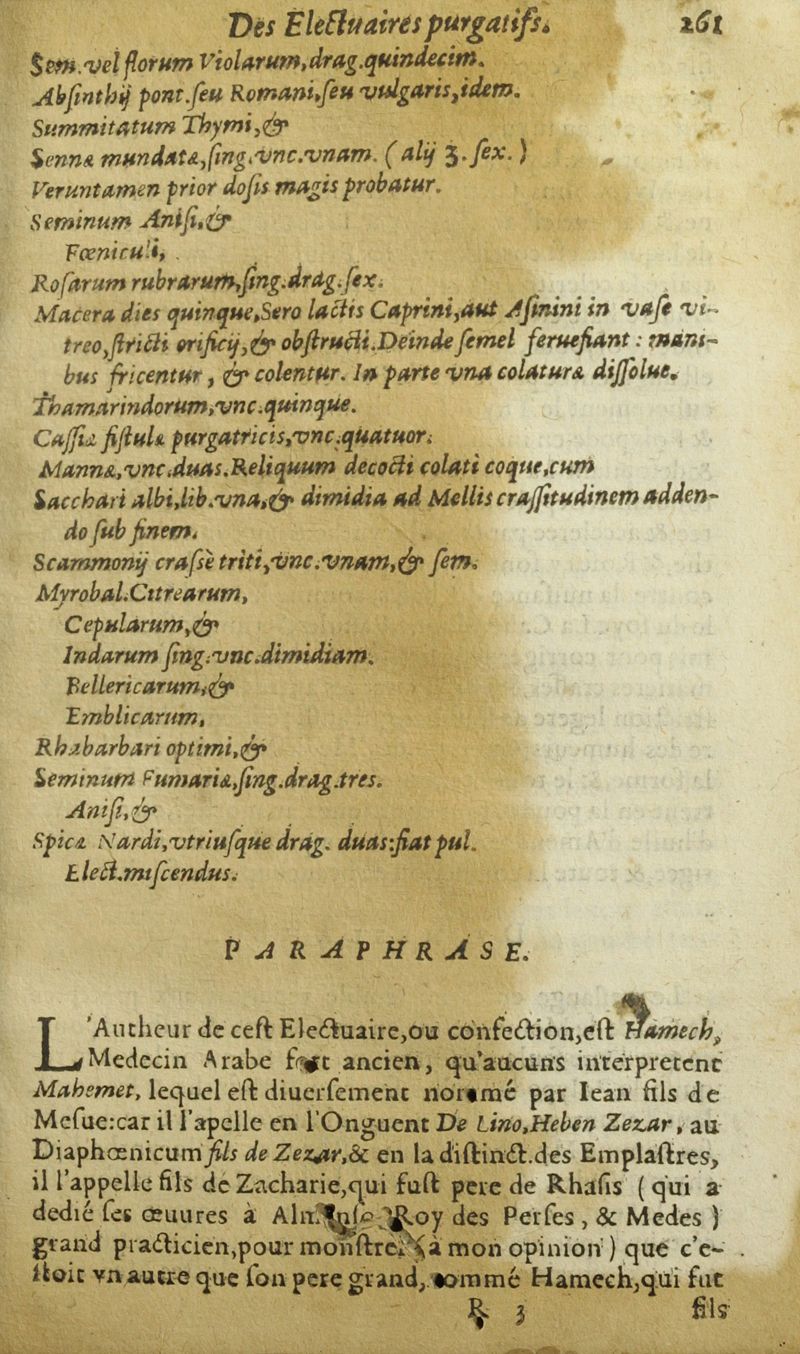 Des Electuaires purgatifs. 261
Sem. vel florum Violarum, drag. quindecim.
Absinthij pont. seu Romani, seu vulgaris, idem.
Summitatum Thymi, &
Sennæ mundatæ, sing. vnc. vnam. ( alij ʒ. sex. )
Veruntamen prior dosis magis probatur.
Seminum Anisi, &
Fœniculi,
Rosarum rubrarum, sing. drag. sex.
Macera dies quinque, Sero lactis Caprini, aut Asinini in vase vi-
treo, stricti orificij, & obstructi. Deinde semel feruefiant : mani-
bus fricentur, & colentur. In parte vna colaturæ dissolue.
Thamarindorum, vnc. quinque.
Cassiæ fistulæ purgatricis, vnc. quatuor.
Mannæ, vnc. duas. Reliquum decocti colati coque, cum
Sacchari albi, lib. vna, & dimidia ad Mellis crassitudinem adden-
do sub finem.
Scammonij crasse triti, vnc. vnam, & sem.
Myrobal. Citrearum,
Cepularum, &
Indarum sing. vnc. dimidiam.
Bellericarum, &
Emblicarum,
Rhabarbari optimi, &
Seminum Fumariæ, sing. drag. tres.
Anisi, &
Spicæ Nardi, vtriusque drag. duas: fiat pul.
Elect. miscendus.
PARAPHRASE.
L'Autheur de cest Electuaire, ou confection, est Hamech,
Medecin Arabe fort ancien, qu'aucuns interpretent
Mahemet, lequel est diuersement nommé par Iean fils de
Mesue: car il l'apelle en l'Onguent De Lino, Heben Zezar, au
Diaphœnicum fils de Zezar, & en la distinct. des Emplastres,
il l'appelle fils de Zacharie, qui fust pere de Rhasis ( qui a
dedié ses œuures à Roy des Perses, & Medes )
grand practicien, pour monstrer ( à mon opinion ) que c'e-
stoit vn autre que son pere grand, nommé Hamech, qui fut
R 3 fils